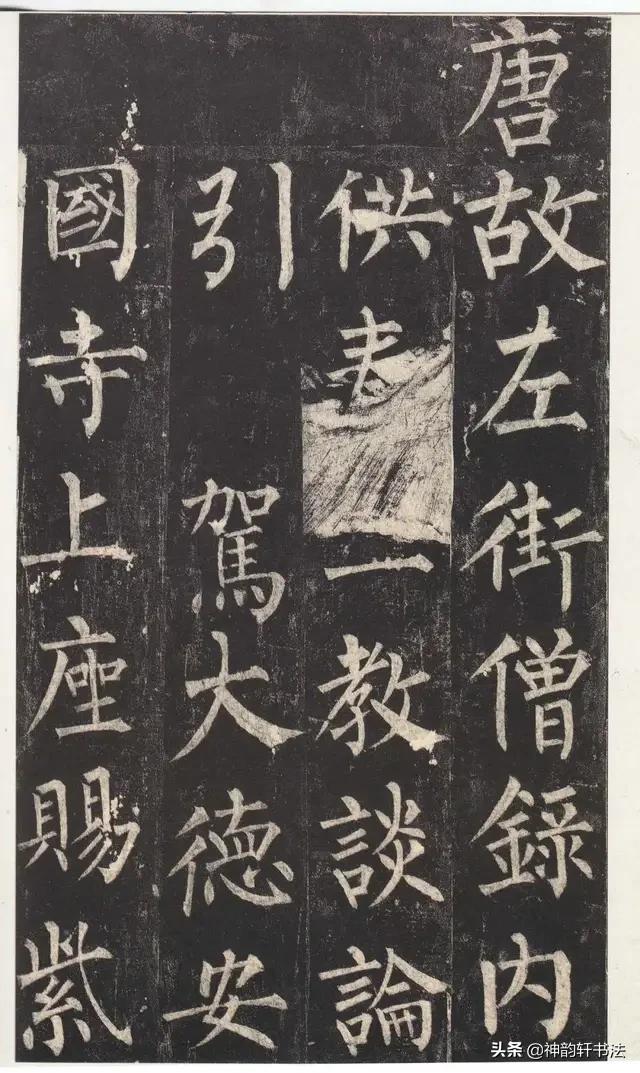 唐故左街僧録内
供教談論
引駕大德安
國寺上座賜紫
头条 @神韵轩书法